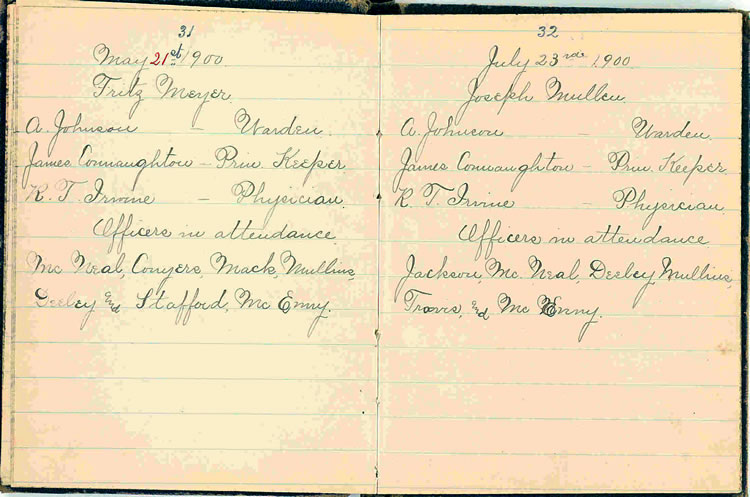 31
May 21st 1900
Fritz Meyer.
A. Johnson — Warden.
James Connaughton — Prin. Keeper
R. T. Irvine — Physician.
Officers in attendance.
Mc Neal, Conyers, Mack, Mullins,
Deeley and Stafford, Mc Enny.
32
July 23rd 1900
Joseph Mullen.
A. Johnson — Warden.
James Connaughton — Prin. Keeper
R. T. Irvine — Physician.
Officers in attendance
Jackson, Mc. Neal, Deeley, Mullins,
Travis, and Mc Enny.